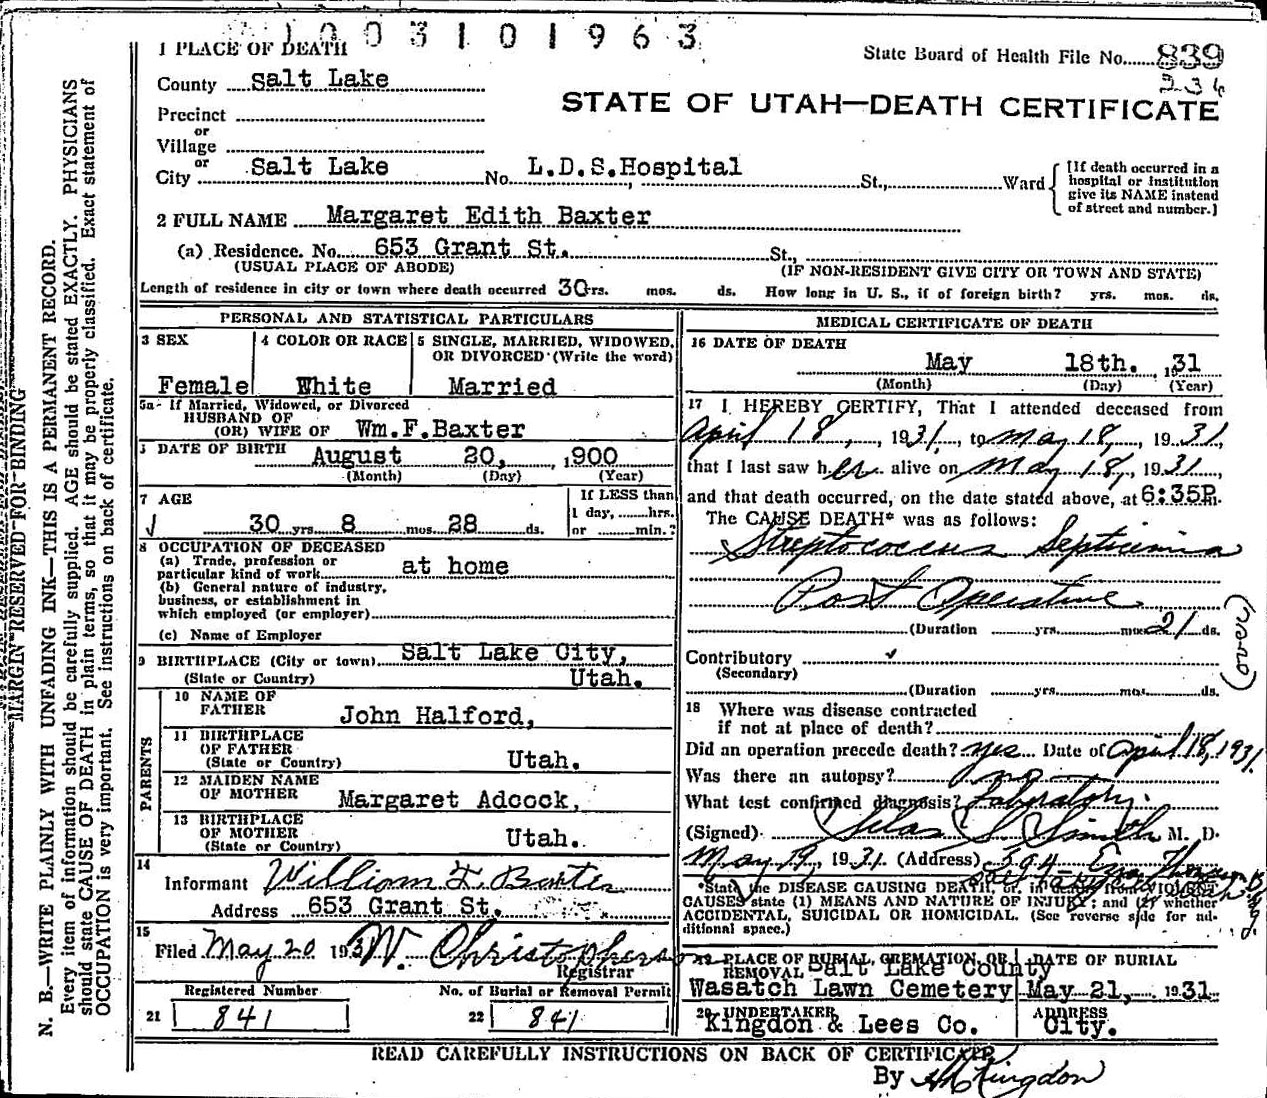 1003101963
1 PLACE OF DEATH
State Board of Health File No. 839
234
County Salt Lake
STATE OF UTAH—DEATH CERTIFICATE
Precinct
or
Village
or
City Salt Lake No. L.D.S.Hospital St., Ward
[If death occurred in a
hospital or institution
give its NAME instead
of street and number.]
2 FULL NAME Margaret Edith Baxter
(a) Residence. No. 653 Grant St. St.,
(USUAL PLACE OF ABODE) (IF NON-RESIDENT GIVE CITY OR TOWN AND STATE)
Length of residence in city or town where death occurred 30 yrs. mos. ds. How long in U. S., if of foreign birth? yrs. mos. ds.
PERSONAL AND STATISTICAL PARTICULARS
3 SEX 4 COLOR OR RACE 5 SINGLE, MARRIED, WIDOWED,
OR DIVORCED (Write the word)
Female White Married
5a If Married, Widowed, or Divorced
HUSBAND OF
(OR) WIFE OF Wm.F.Baxter
DATE OF BIRTH August 20, 1900
(Month) (Day) (Year)
7 AGE If LESS than
1 day, hrs.
30 yrs 8 mos. 28 ds. or min.?
8 OCCUPATION OF DECEASED
(a) Trade, profession or
particular kind of work at home
(b) General nature of industry,
business, or establishment in
which employed (or employer)
(c) Name of Employer
9 BIRTHPLACE (City or town) Salt Lake City,
(State or Country) Utah.
PARENTS
10 NAME OF
FATHER John Halford,
11 BIRTHPLACE
OF FATHER
(State or Country) Utah.
12 MAIDEN NAME
OF MOTHER Margaret Adcock,
13 BIRTHPLACE
OF MOTHER
(State or Country) Utah.
14
Informant William F. Baxter
Address 653 Grant St.
15
Filed May 20 1931 W. Christopherson
Registrar
Registered Number No. of Burial or Removal Permit
21 841 22 841
MEDICAL CERTIFICATE OF DEATH
16 DATE OF DEATH
May 18th. 131
(Month) (Day) (Year)
17 I HEREBY CERTIFY, That I attended deceased from
April 18, 1931, to May 18, 1931,
that I last saw her alive on May 18, 1931,
and that death occurred, on the date stated above, at 6:35P.
The CAUSE DEATH* was as follows:
Streptococcus Septicimia
Post Operative
(Duration yrs. mos. 21 ds.
(over)
Contributory
(Secondary)
(Duration yrs. mos. ds.
18 Where was disease contracted
if not at place of death?
Did an operation precede death? yes Date of April 18, 1931.
Was there an autopsy? no
What test confirmed diagnosis? Laboratory.
(Signed) Silas S. Smith M. D.
May 19, 1931. (Address) 504 Ezra Thompson Bldg.
*State the DISEASE CAUSING DEATH, or, in deaths from VIOLENT
CAUSES state (1) MEANS AND NATURE OF INJURY; and (2) whether
ACCIDENTAL, SUICIDAL OR HOMICIDAL. (See reverse side for ad-
ditional space.)
19 PLACE OF BURIAL, CREMATION, OR DATE OF BURIAL
REMOVAL Salt Lake County
Wasatch Lawn Cemetery May 21, 1931
20 UNDERTAKER ADDRESS
Kingdon & Lees Co. City.
READ CAREFULLY INSTRUCTIONS ON BACK OF CERTIFICATE
By Kingdon
MARGIN RESERVED FOR BINDING
N. B.—WRITE PLAINLY WITH UNFADING INK—THIS IS A PERMANENT RECORD.
Every item of information should be carefully supplied. AGE should be stated EXACTLY. PHYSICIANS
should state CAUSE OF DEATH in plain terms, so that it may be properly classified. Exact statement of
OCCUPATION is very important. See instructions on back of certificate.